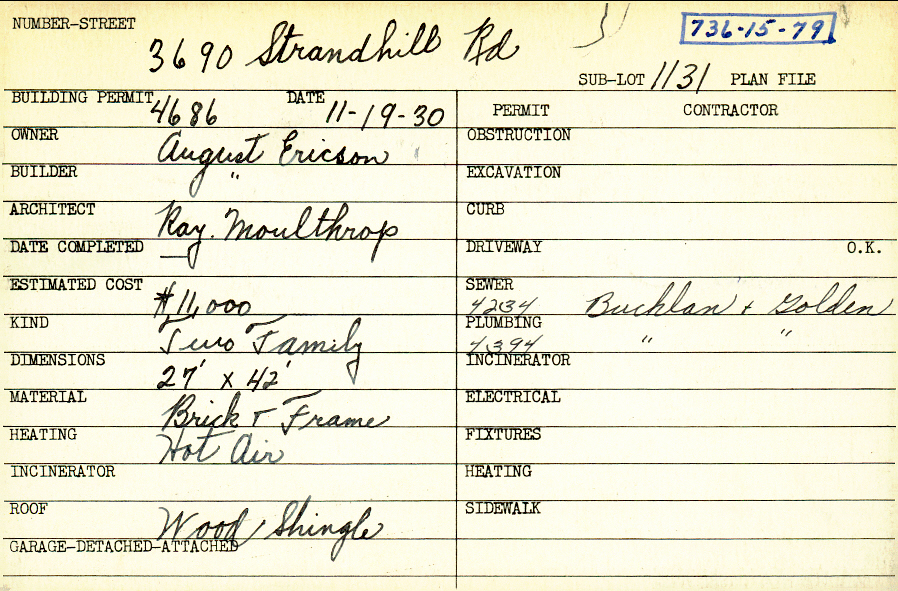 NUMBER-STREET 3690 Strandhill Rd
736-15-79
SUB-LOT 1131 PLAN FILE
BUILDING PERMIT 4686 DATE 11-19-30
PERMIT CONTRACTOR
OWNER August Ericson
OBSTRUCTION
BUILDER "
EXCAVATION
ARCHITECT Ray. Moulthrop
CURB
DATE COMPLETED —
DRIVEWAY O.K.
ESTIMATED COST $11,000
SEWER 4234 Buchlan + Golden
KIND Two Family
PLUMBING 4394 " "
DIMENSIONS 27' x 42'
INCINERATOR
MATERIAL Brick + Frame
ELECTRICAL
HEATING Hot Air
FIXTURES
INCINERATOR
HEATING
ROOF Wood Shingle
SIDEWALK
GARAGE-DETACHED-ATTACHED